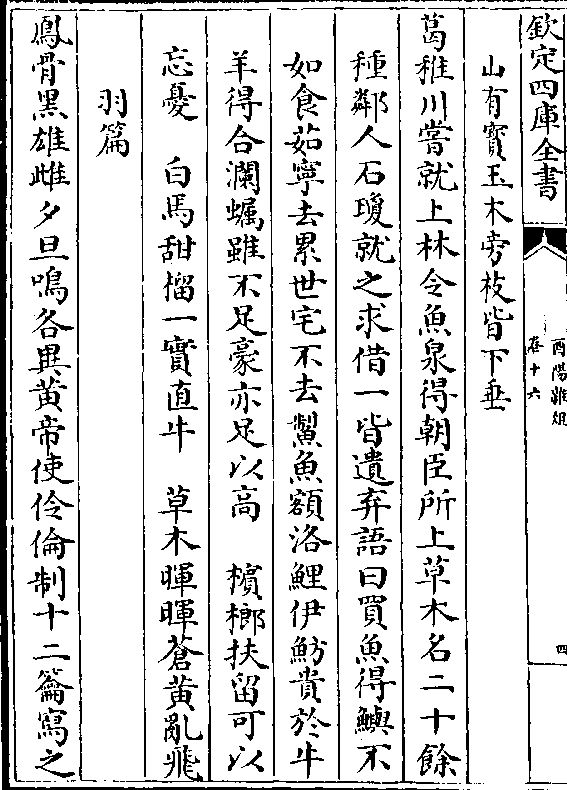 欽定四庫全書
酉陽雜俎
卷十六
四
山有寶玉木旁枝皆下垂
葛稚川嘗就上林令魚泉得朝臣所上草木名二十餘
種鄰人石瓊就之求借一皆遺弃語曰買魚得鱮不
如食茹寧去累世宅不去鮆魚額洛鯉伊魴貴於牛
羊得合澜蠣雖不足豪亦足以高　檳榔扶留可以
忘憂　白馬甜榴一實直牛　草木暉暉蒼黃亂飛
羽篇
鳳骨黑雄雌夕旦鳴各異黃帝使伶倫制十二籥寫之